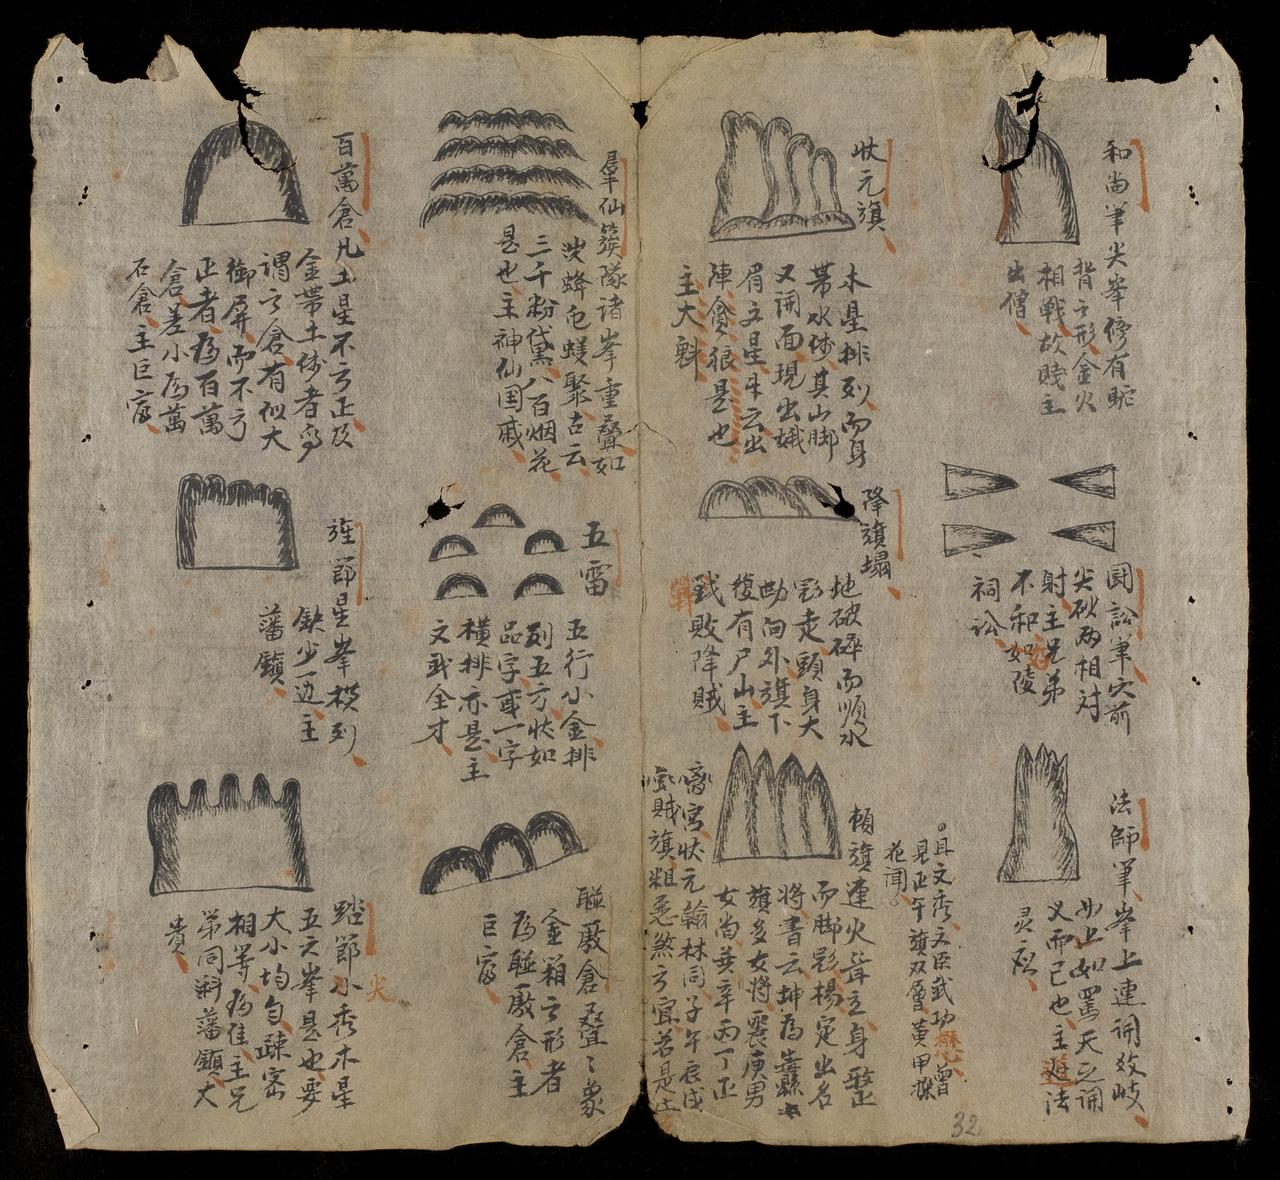 和尚筆尖峯傍有駝
背之形金火
相戰故賤主
出僧
鬪訟筆穴前
尖砂兩相对
射主兄弟
不和如陵
祠訟
法師筆峯上連開数岐
如上如罵天之開
义而已也主遊法
灵應
狀元旗
木星排列而身
帯水体其山脚
又開面現出娥
眉文星斗云出
陣貪狼是也
主大魁
降旗塌
地破碎而順水
影走頭身大
曲向外旗下
復有尸山主
戰敗降賊
頓旗連火耸立身整
而脚影楊定出名
将書云坤為蠹
旗多女将震庚男
女尚兵辛丙丁正
齋宮狀元翰林同子午辰戌
賊旗粗悪煞方宜若是
且文秀文臣武功懋曾
見正午旗双層黄甲探
花聞
羣仙簇隊諸峯重叠如
洪蜂屯蟻聚古云
三千粉黛八百烟花
是也主神仙国戚
五雷
五行小金排
列五方状如
品字或一字
横排亦是主
文武全才
聯廒倉叠之象
金箱之形者
為聯廒倉主
巨富
百萬倉凡土星不方正及
金帯土体者多
謂之倉有似大
御屏而不方
正者為百萬
倉差小為萬
石倉主巨富
旌節星峯横列
缺少迈主
藩鎮
踏節小秀木星
五六峯是也要
尖
大小均匀踈密
相等為佳主兄
弟同科藩鎮大
貴
32